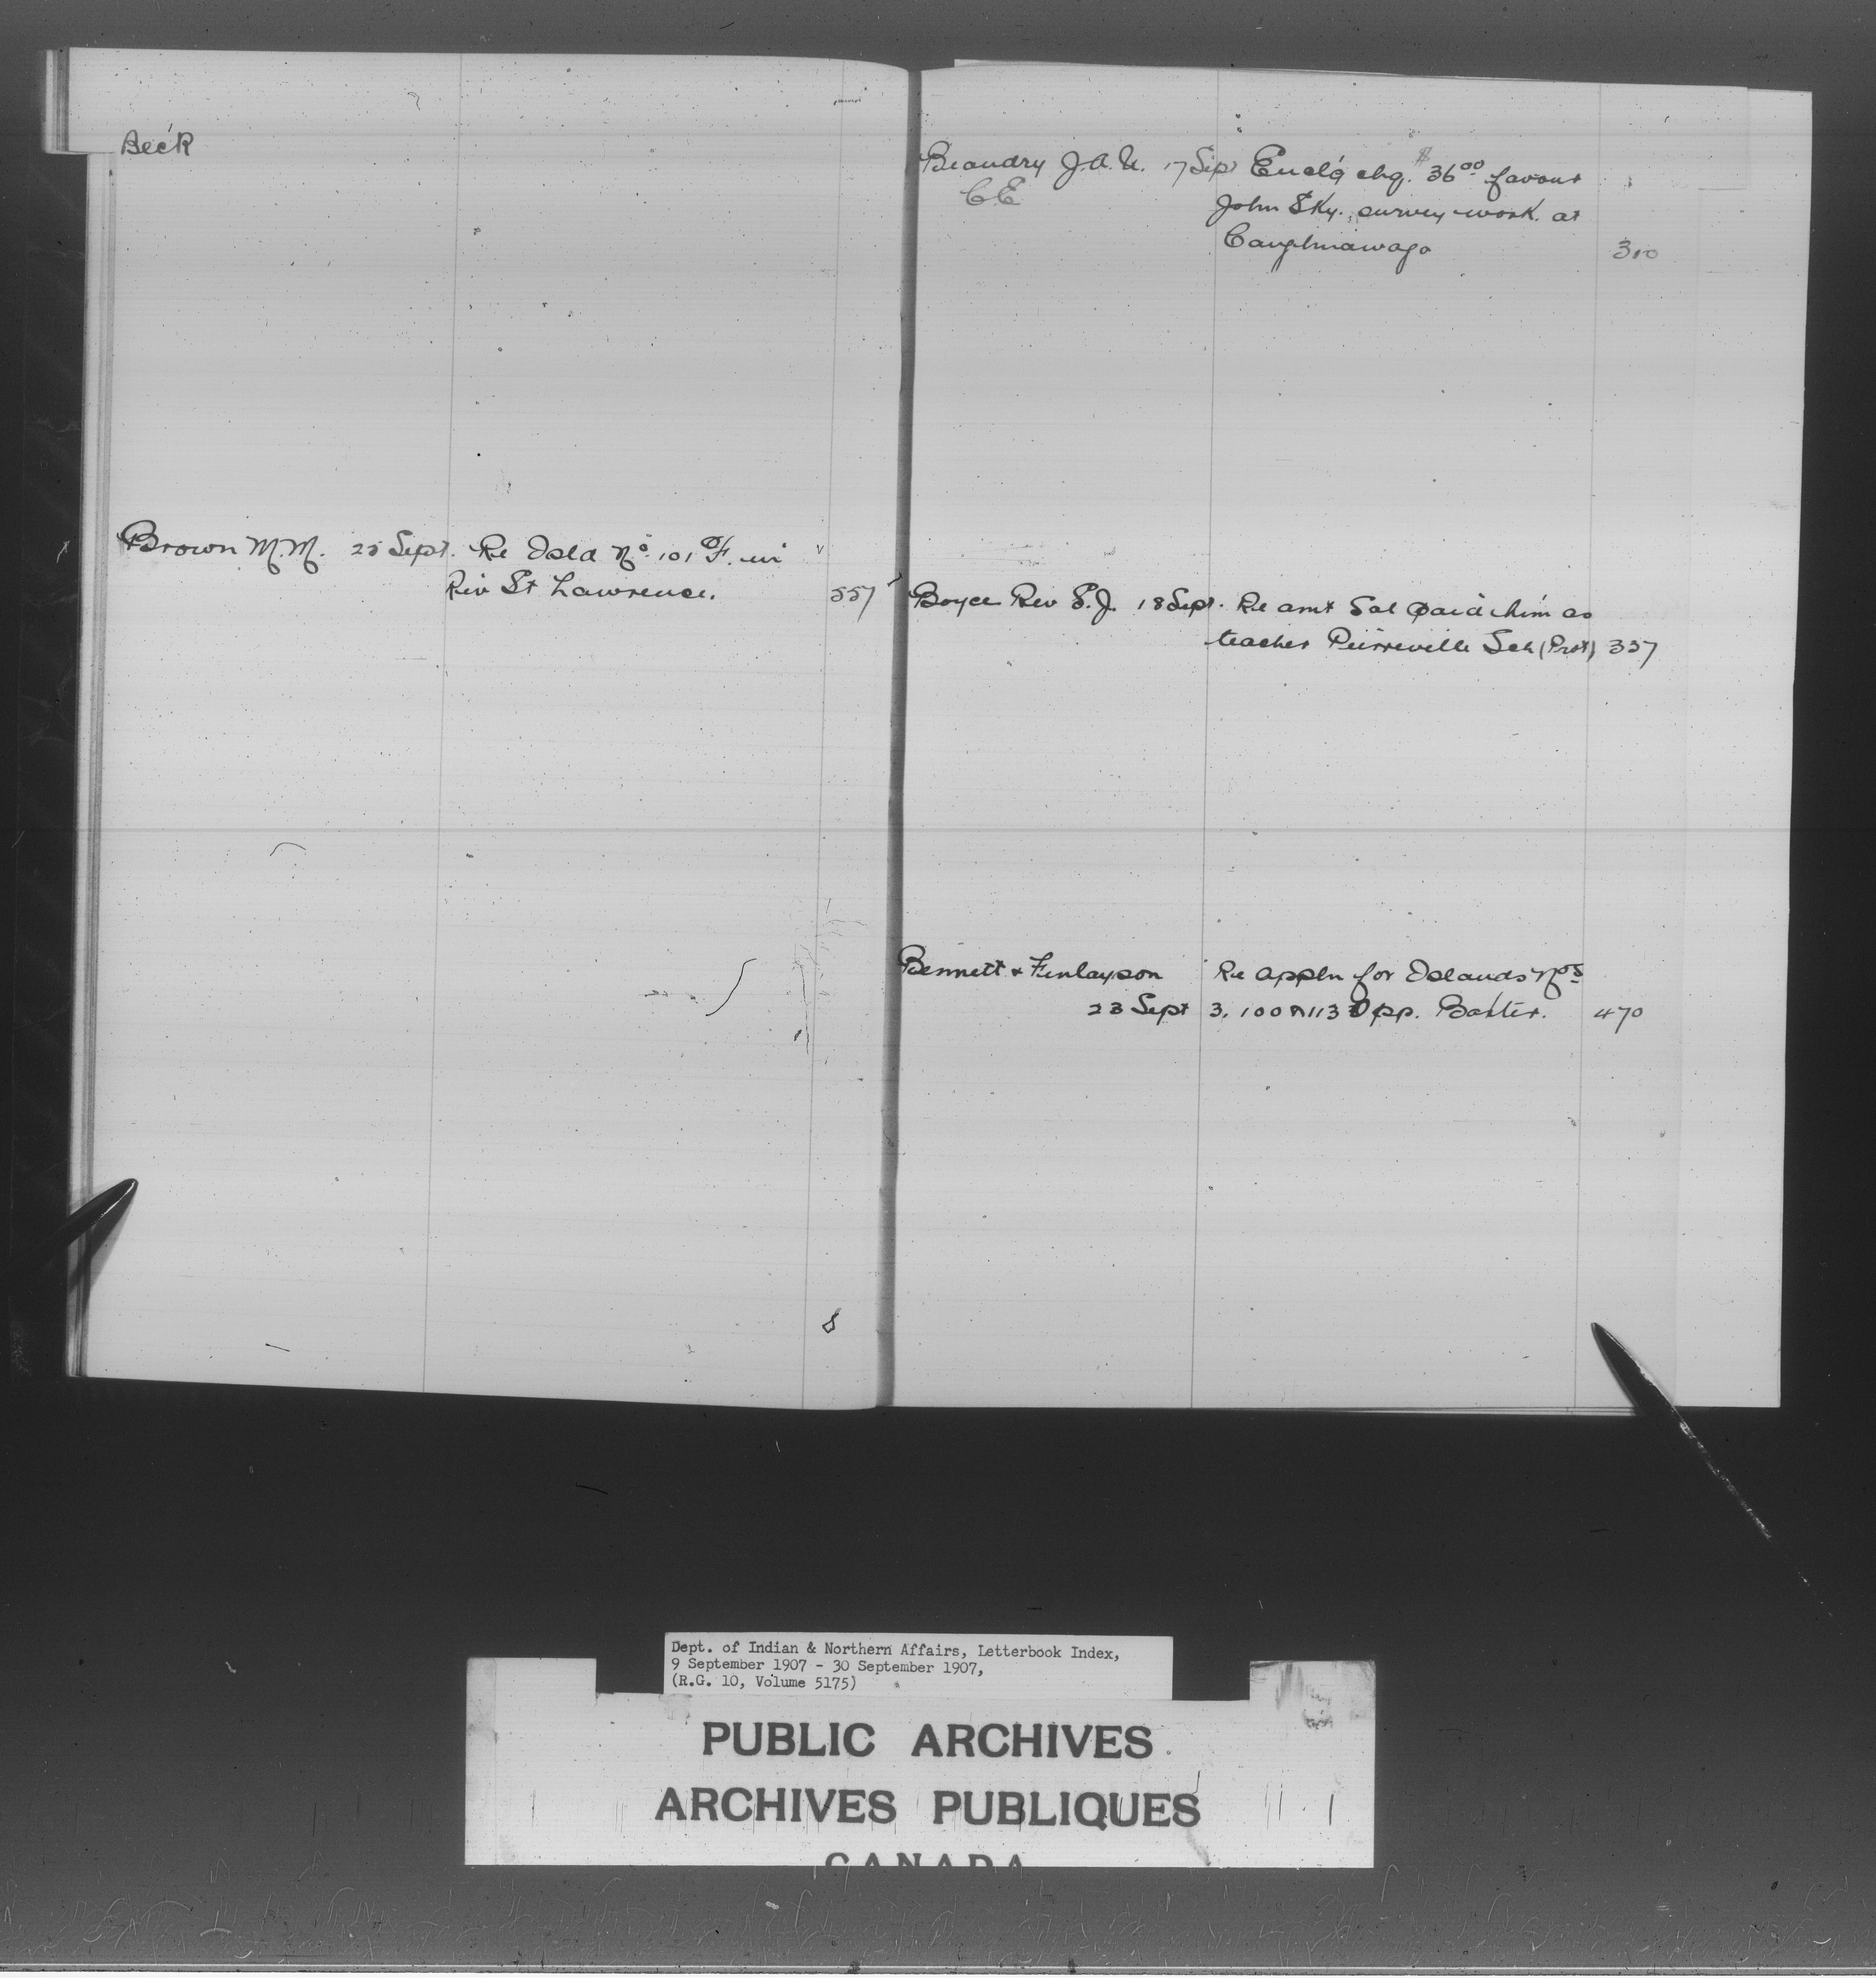 Beck
Brown M.M. 25 Sept. Re Isld No. 101 F. in
Riv St Lawrence. 557
Beaudry J.A.U. 17 Sept Encl'g chq. $36.00 favour
C.E. John Sky, survey work at
Caughnawaga 310
Boyce Rev E.J. 18 Sept. Re amt Sal paid him as
teacher Pierreville Sch (Prot) 337
Bennett & Finlayson Re appln for Islands Nos
23 Sept 3, 100 & 113 Opp. Baxter. 470
Dept. of Indian & Northern Affairs, Letterbook Index,
9 September 1907 - 30 September 1907,
(R.G. 10, Volume 5175)
PUBLIC ARCHIVES
ARCHIVES PUBLIQUES
CANADA